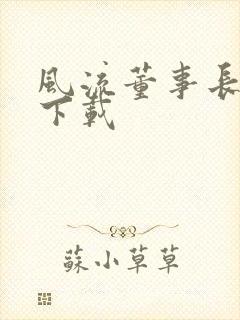 風流董事長
下載
蘇小草草